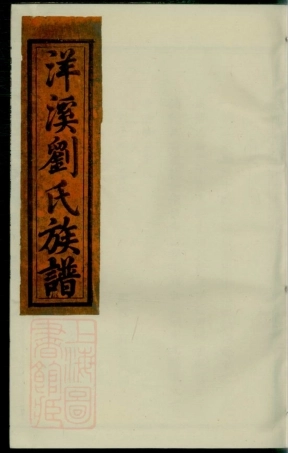 洋溪劉氏族譜
上海圖
書館藏